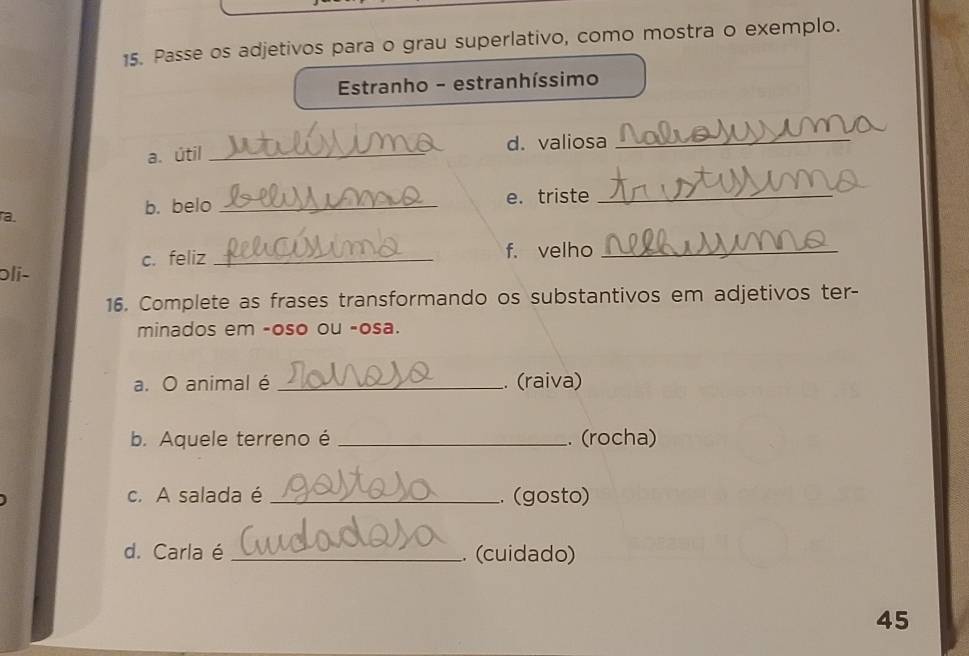 15. Passe os adjetivos para o grau superlativo, como mostra o exemplo.
Estranho - estranhíssimo
a. útil utilíssimo
d. valiosa valiosissima
b. belo belissimo
e. triste tristissimo
ra.
c. feliz felicíssimo
f. velho velhissimo
oli-
16. Complete as frases transformando os substantivos em adjetivos ter-
minados em -oso ou -osa.
a. O animal é raivoso. (raiva)
b. Aquele terreno é ____. (rocha)
c. A salada é gostosa. (gosto)
d. Carla é Cuidadosa. (cuidado)
45